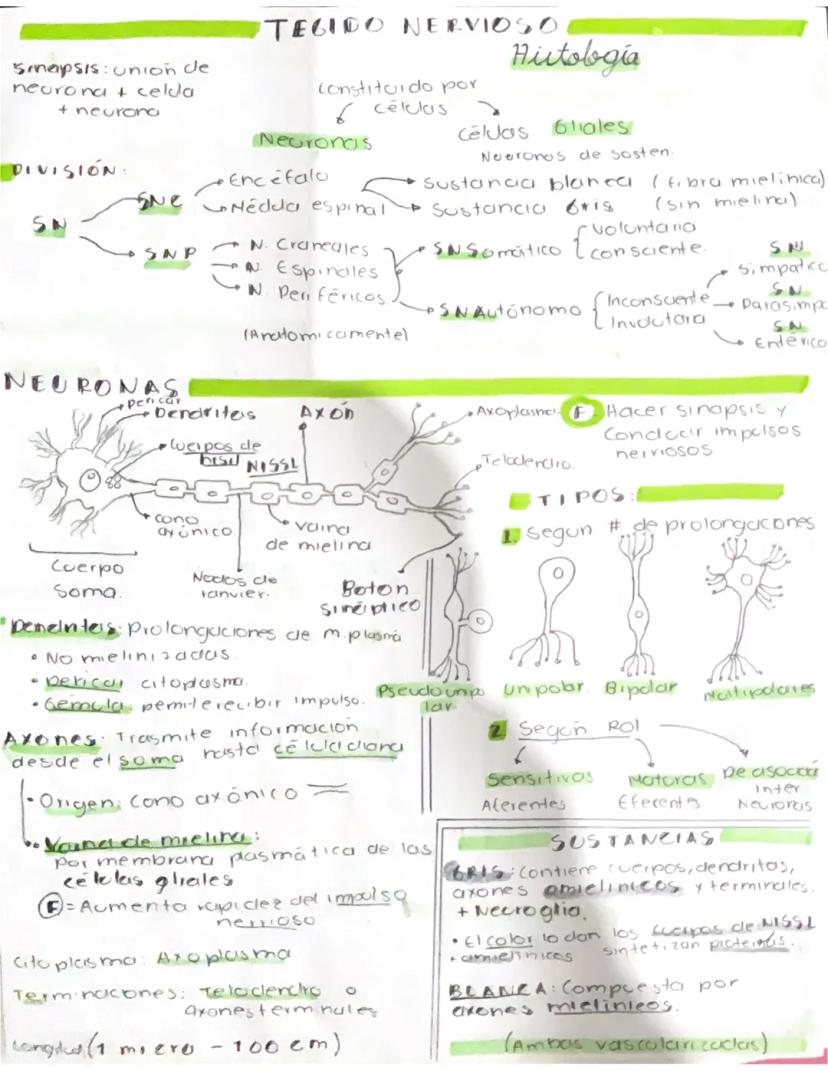 TEGIDO NERVIOSO
Histología
Sinapsis: unión de
neurona + celda
+ neurona
Constituido por
células
Neuronas
Células Gliales
Neuronas de sosten.
DIVISIÓN:
SN
SNC
Encéfalo
Médula espinal
Sustancia blanca (fibra mielinica)
Sustancia Gris (sin mielina)
SNP
N. Craneales
N. Espinales
N. Periféricos
(Anatomicamente)
SNSomático
Voluntaria
consciente.
SNAutónomo
Inconsciente
Involutora
SN
Simpatico
SN
Parasimpa
SN
Entérico
NEURONAS
pericar
Dendritas
Cuerpos de
NISSL
Axón
cono
axónico
vaina
de mielina
Cuerpo
Soma.
Nodos de
ranvier.
Boton
sináptico
Axoplasma.
Telodendro.
F: Hacer sinapsis y
Conducir impulsos
nerviosos
TIPOS:
1. Segun # de prolongaciones
Pseudounipo
lar.
Unipolar.
Bipolar
Multipolares
2 Según Rol
Sensitivas
Aferentes
Motoras
Eferentes
De asocci
Inter
Neuronas
Dendritas: Prolongaciones de m.plasmá
• No mielinizadas.
• pericar citoplasma.
• Gémula: permite recibir impulso.
Axones: Trasmite información
desde el soma hasta célula diana
• Origen: cono axónico
• Vaina de mielina:
por membrana plasmática de las
células gliales
F = Aumenta rapidez del impulso
nervioso
Citoplasma: Axoplasma
Terminaciones: Telodendro o
axones terminales
Longitud (1 micro - 100 cm)
SUSTANCIAS
GRIS: Contiene cuerpos, dendritas,
axones amielinicos y terminales.
+ Neuroglia.
• El color lo dan los cuerpos de NISSL
• amielinicos sintetizan proteinas.
BLANCA: Compuesta por
axones mielinicos.
(Ambas vascularizadas)